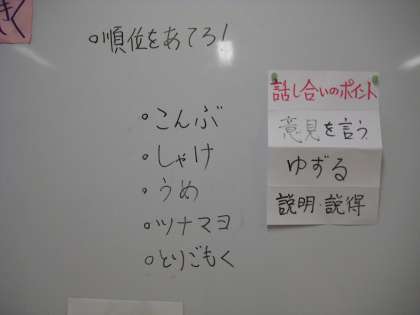 ○順位をあてろ!
○こんぶ
○しゃけ
○うめ
○ツナマヨ
○とりごもく
話し合いのポイント
意見を言う
ゆずる
説明・説得